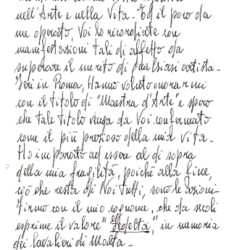 nell'Arte e nella Vita. Ed il poco da
me operato, Voi lo riconoscete con
manifestazioni tali di affetto da
superare il merito di qualsiasi artista.
Ieri in Roma, Hanno voluto onorarmi
con il titolo di "Maestra d'Arte" e spero
che tale titolo venga da Voi confermato
come il più prezioso della mia vita.
Ho imparato ad essere al di sopra
della mia fragilità, poiché alla fine,
ciò che resta di Noi tutti, sono le azioni.
Firmo con il mio cognome, che da secoli
esprime il valore " " in memoria
dei Cavalieri di Malta.